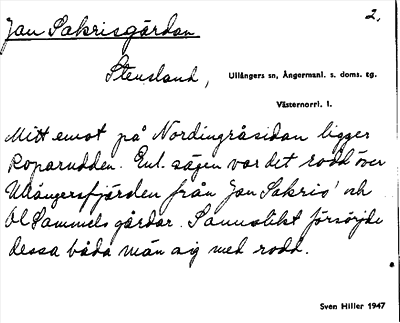 Jan Sakrisgården
2.
Stensland,
Ullångers sn, Ångermanl. s. doms. tg.
Västernorrl. l.
Mitt emot på Nordingråsidan ligger
Roparudden. Enl. sägen var det rodd över
Ullångersfjärden från Jan Sakris' och
Ol Sammels gårdar. Sannolikt försörjde
dessa båda män sig med rodd.
Sven Hiller 1947